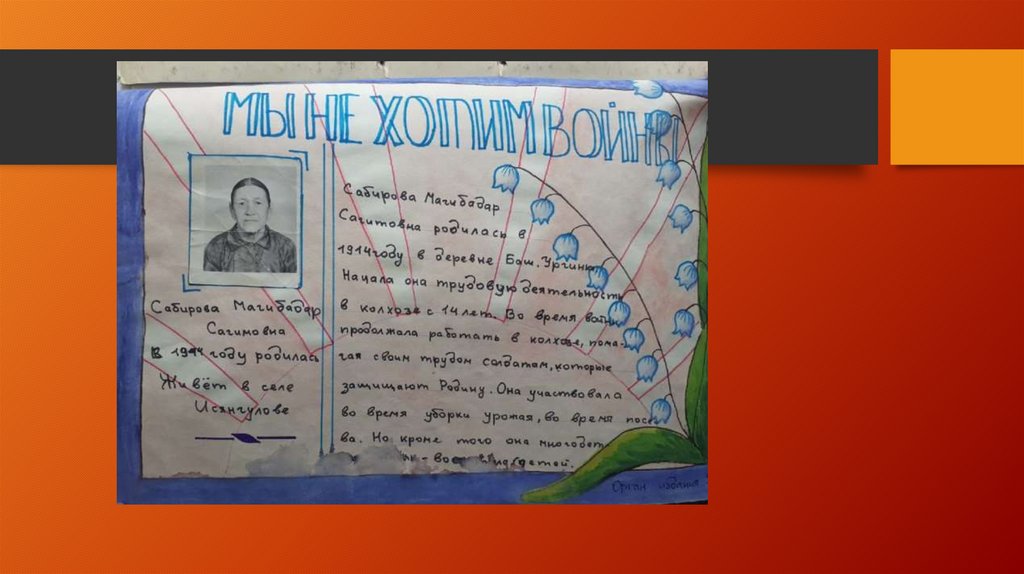 МЫ НЕ ХОТИМ ВОЙНЫ
Сабирова Магибадар
Сагимовна
В 1914 году родилась
Живёт в селе
Исянгулове
Сабирова Магибадар
Сагитовна родилась в
1914 году в деревне Баш. Ургинка
Начала она трудовую деятельность
в колхозе с 14 лет. Во время войны
продолжала работать в колхозе, пома-
гая своим трудом солдатам, которые
защищают Родину. Она участвовала
во время уборки урожая, во время посе
ва. Но кроме того она многодет
детей.
Орган издания